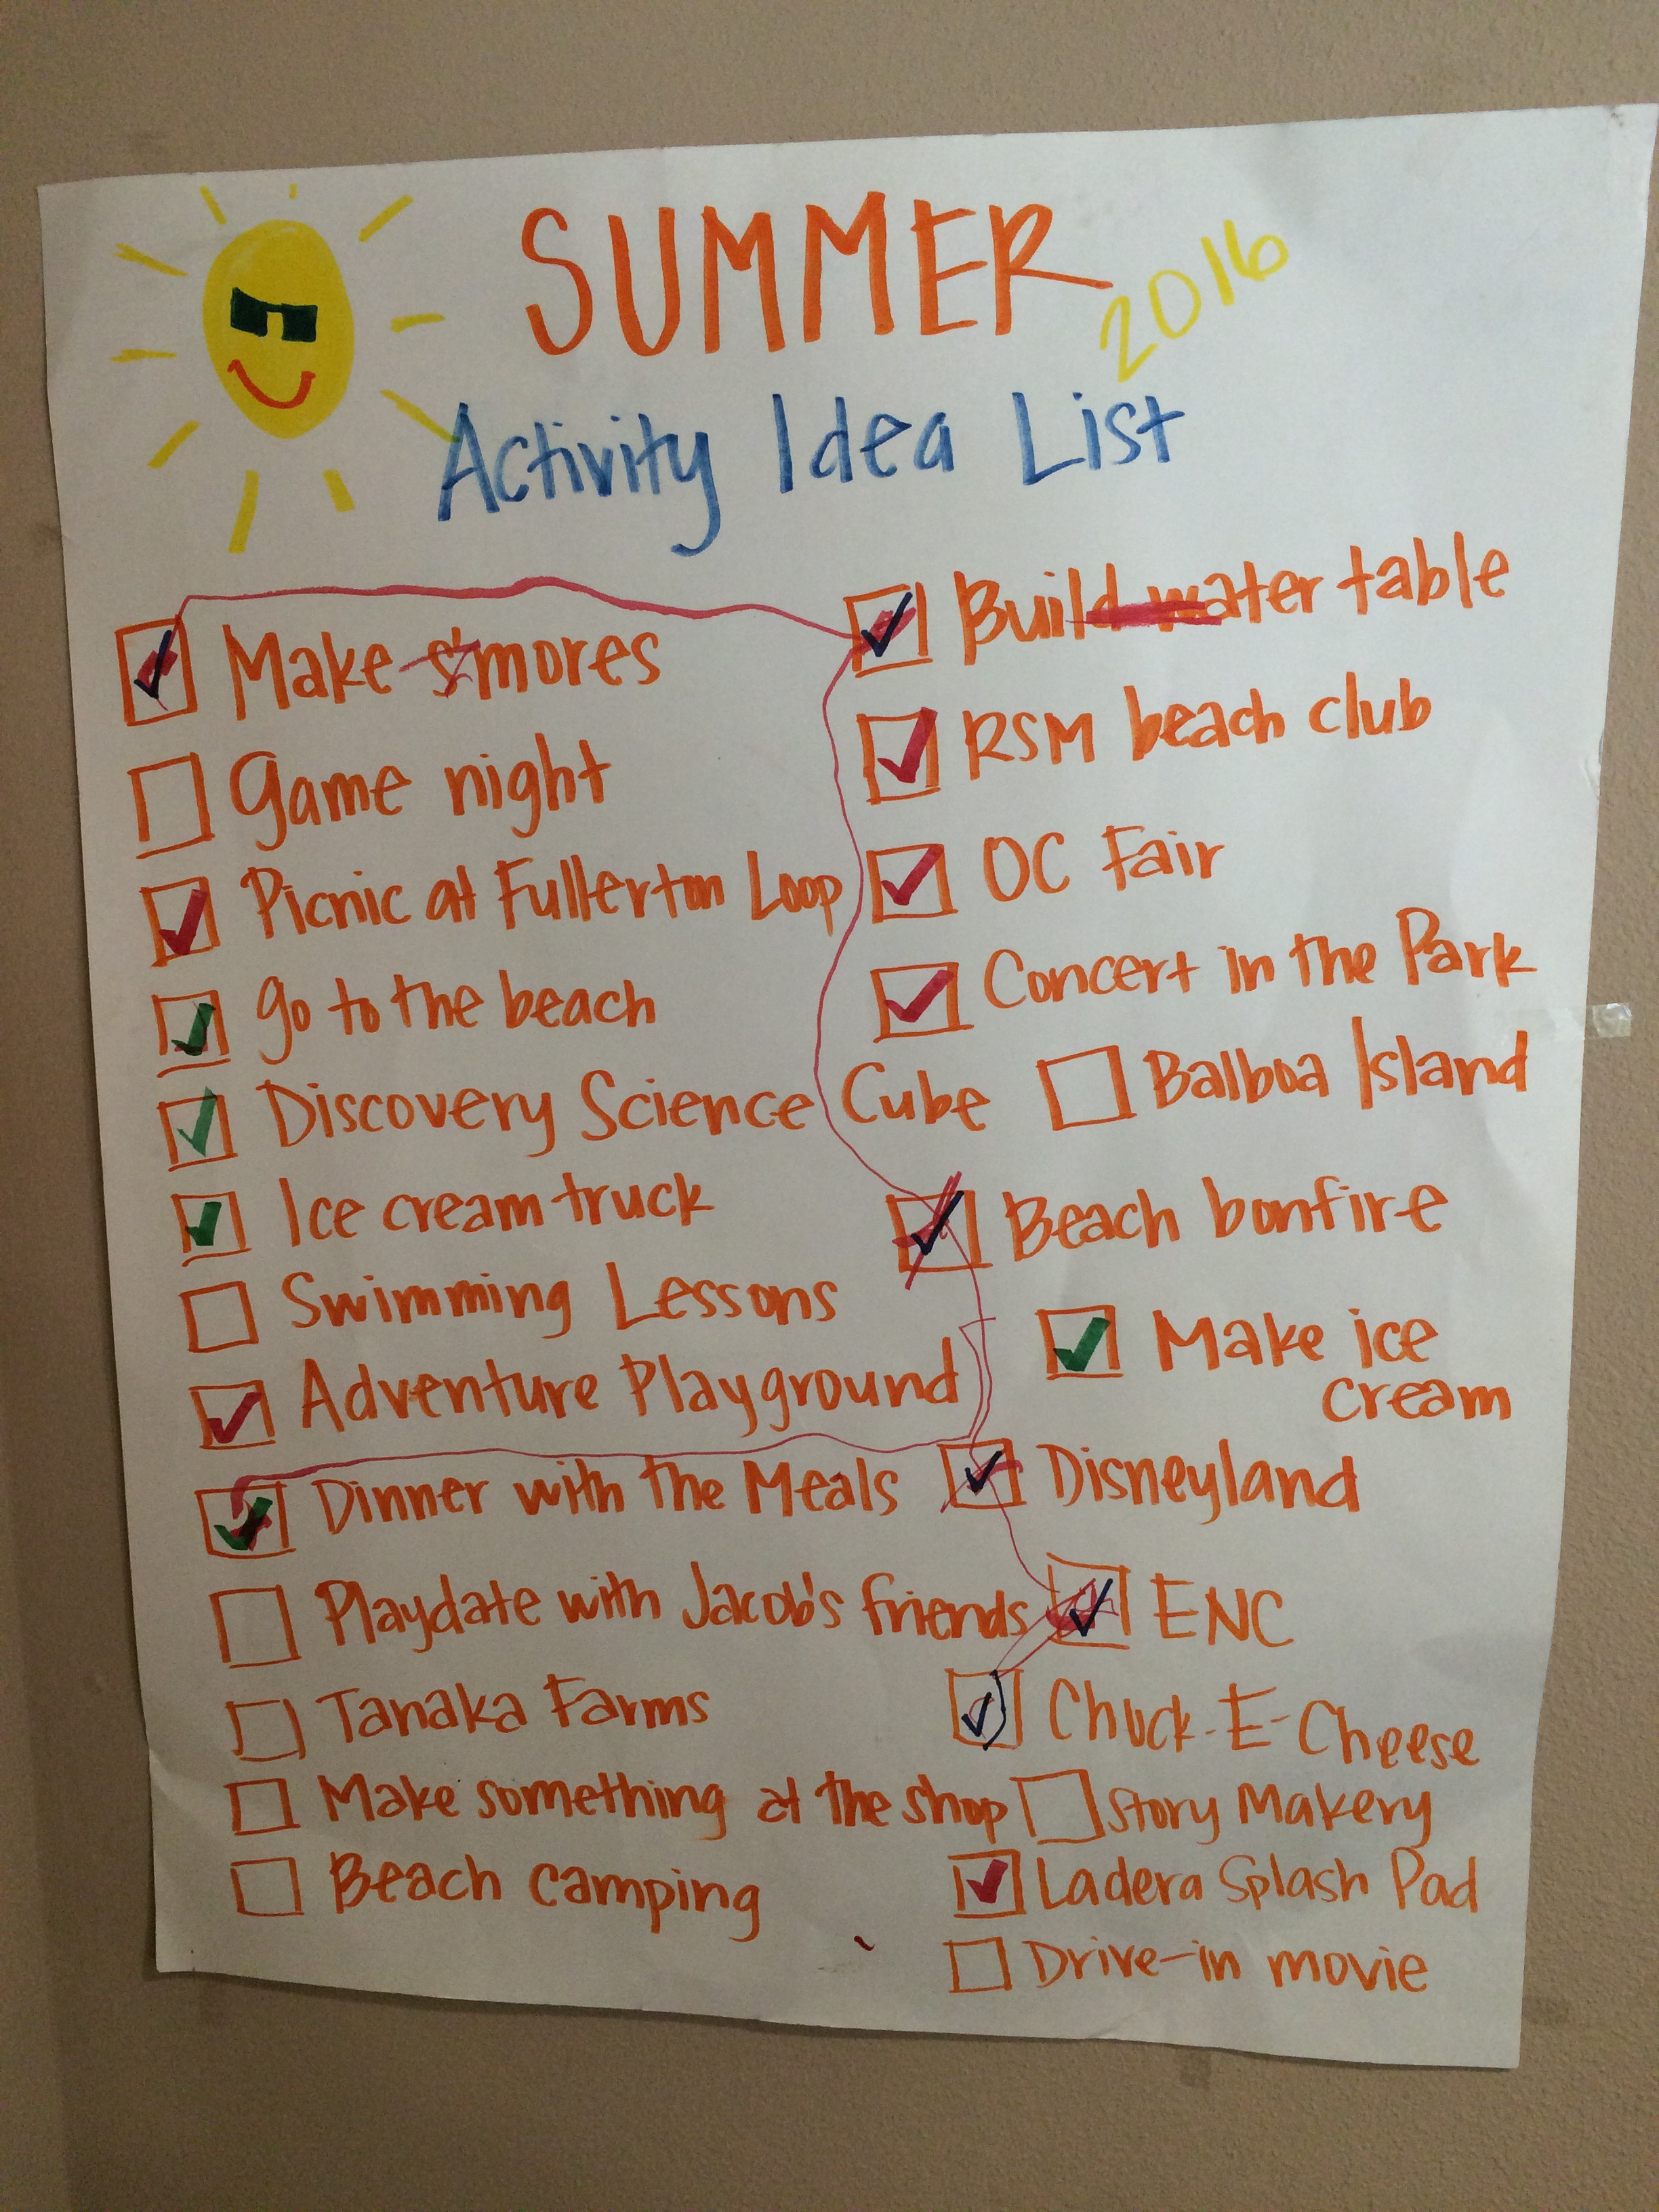 SUMMER
2016
Activity Idea List
Make s'mores
Game night
Picnic at Fullerton Loop
go to the beach
Discovery Science Cube
Ice cream truck
Swimming Lessons
Adventure Playground
Dinner with the Meals
Playdate with Jacob's friends
Tanaka Farms
Make something at the shop
Beach camping
Build water table
RSM beach club
OC Fair
Concert in the Park
Balboa Island
Beach bonfire
Make ice
cream
Disneyland
ENC
Chuck-E-Cheese
Story Makery
Ladera Splash Pad
Drive-in movie